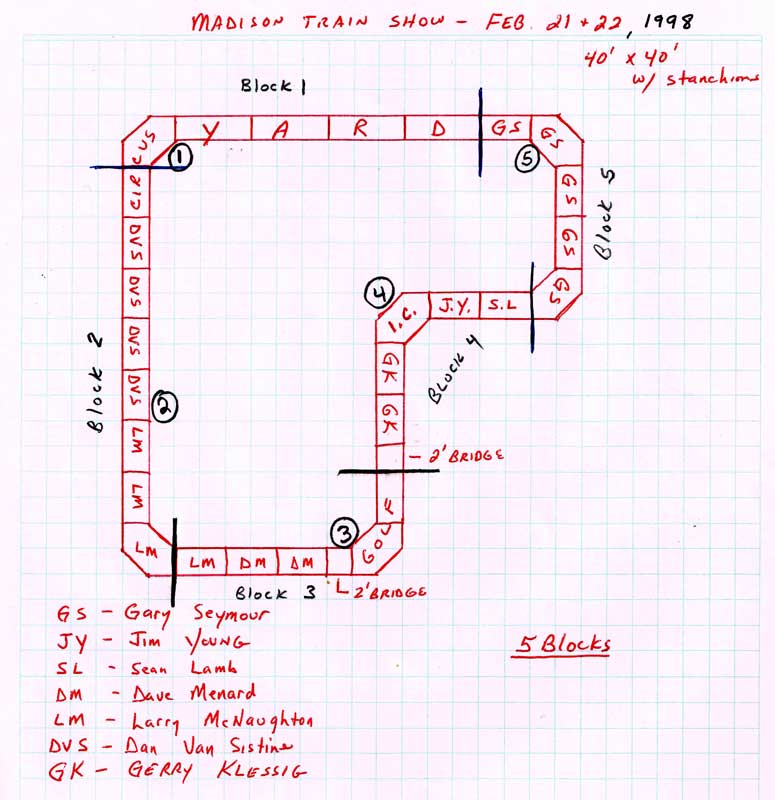 MADISON TRAIN SHOW - FEB. 21 + 22, 1998
40' x 40'
w/ stanchions
Block 1
CVS Y A R D GS GS
1
5
RIP
DVS
DVS
DVS
DVS
LM
LM
LM
Block 2
2
GS
GS
GS
Block 5
4
I.C. J.Y. S.L
Block 4
GK
GK
- 2' BRIDGE
3
GOLF
LM DM DM
Block 3
2' BRIDGE
GS - Gary Seymour
JY - Jim YOUNG
SL - Sean Lamb
DM - Dave Menard
LM - Larry McNaughton
DVS - Dan Van Sistine
GK - GERRY KLESSIG
5 Blocks